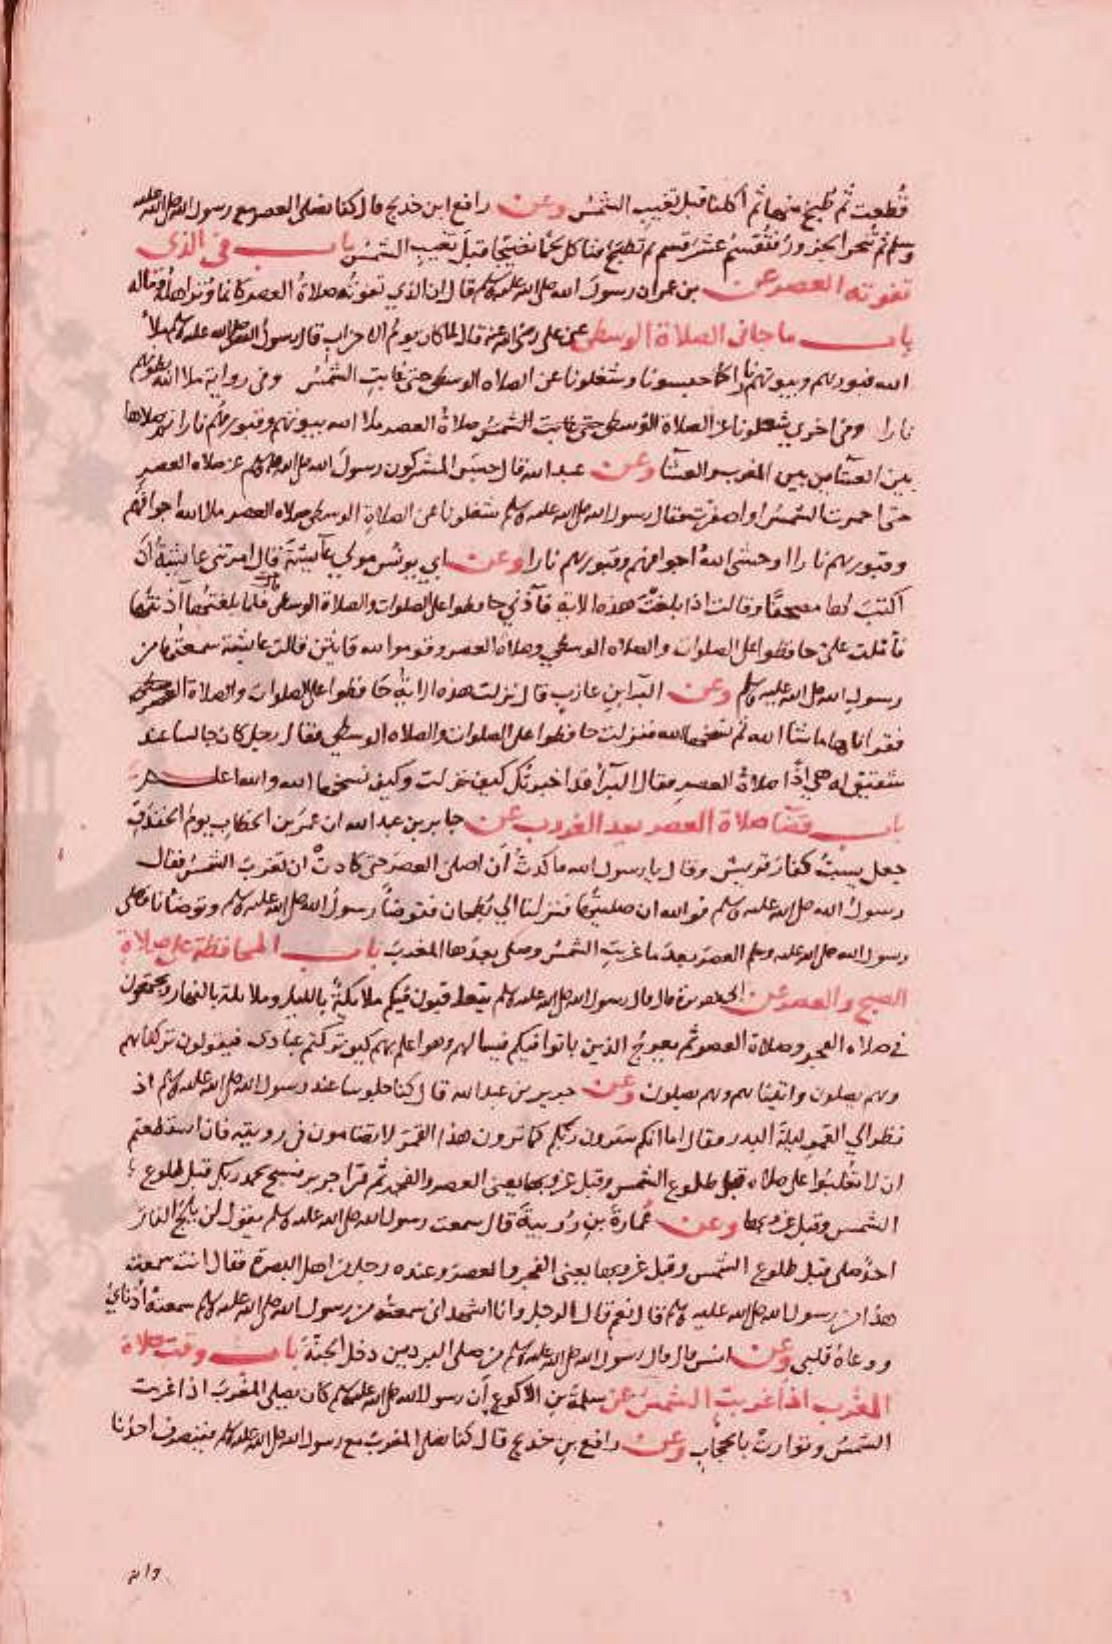 قُطعت ثم طُبخ منها ثم أكلنا قبل تغيب الشمس وعن رافع ابن خديج قال كنا نصلى العصر مع رسول الله صلى الله عليه
وسلم ثم تنحر الجزور فتُقسم عشر قسم ثم تطبخ فناكل لحما نضيجا قبل تغيب الشمس باب فى الذى
تفوته العصر عن بن عمر ان رسول الله صلى الله عليه وسلم قال ان الذي تفوته صلاة العصر كانما وتر اهله وماله
باب ما جا فى الصلاة الوسطى عن على رضى الله عنه قال لما كان يوم الاحزاب قال رسول الله صلى الله عليه وسلم ملأ
الله قبورهم وبيوتهم نارا كما حبسونا وشغلونا عن الصلاه الوسطى حتى غابت الشمس وفى رواية ملا الله
نارا وفى اخري شغلونا عن الصلاة الوسطى حتى غابت الشمس صلاة العصر ملا الله بيوتهم وقبورهم نارا ثم صلاها
بين العشاين بين المغرب والعشا وعن عبد الله قال حبس المشركون رسول الله صلى الله عليه وسلم عن صلاه العصر
حتى احمرت الشمس او اصفرت فقال رسول الله صلى الله عليه وسلم شغلونا عن الصلاة الوسطى صلاه العصر ملا الله اجوافهم
وقبورهم نارا او حشى الله اجوافهم وقبورهم نارا وعن ابي يونس مولي عآيشة قال امرتنى عايشة أن
اكتب لها مصحفا وقالت اذا بلغت هذه الاية فآذني حافظوا على الصلوات والصلاة الوسطى قال فلما بلغتها آذنتها
فأملت على حافظوا على الصلوات والصلاه الوسطي وصلاه العصر وقوموا لله قانتين قالت عايشة سمعتها من
رسول الله صلى الله عليه وسلم وعن البرا بن عازب قال نزلت هذه الاية حافظوا على الصلوات وصلاة العصر
فقراناها ما شآ الله ثم نسخها الله فنزلت حافظوا على الصلوات والصلاه الوسطي فقال رجل كان جالسا عند
شقيق له هي إذًا صلاة العصر فقال البرآ قد اخبرتك كيف نزلت وكيف نسخها الله والله اعلم
باب قضا صلاة العصر بعد الغروب عن جابر بن عبد الله ان عمر بن الخطاب يوم الخندق
جعل يسب كفار قريش وقال يا رسول الله ما كدت أن اصلى العصر حتى كادت ان تغرب الشمس فقال
رسول الله صلى الله عليه وسلم فوالله ان صليتها فنزلنا الي بطحان فتوضأ رسول الله صلى الله عليه وسلم وتوضأنا فصلى
رسول الله صلى الله عليه وسلم العصر بعد ما غربت الشمس وصلى بعدها المغرب باب المحافظة على صلاة
الصبح والعصر عن ابي هريرة قال قال رسول الله صلى الله عليه وسلم يتعاقبون فيكم ملايكة بالليل وملايكة بالنهار ويجتمعون
فى صلاه الفجر وصلاة العصر ثم يعرج الذين باتوا فيكم فيسالهم وهو اعلم بهم كيف تركتم عبادى فيقولون تركناهم
وهم يصلون واتيناهم وهم يصلون وعن جرير بن عبد الله قال كنا جلوسا عند رسول الله صلى الله عليه وسلم اذ
نظر الي القمر ليلة البدر فقال اما انكم سترون ربكم كما ترون هذا القمر لا تضامون فى رويته فان استطعتم
ان لا تُغلبُوا على صلاه قبل طلوع الشمس وقبل غروبها يعنى العصر والفجر ثم قرا جرير فسبح بحمد ربك قبل طلوع
الشمس وقبل غروبها وعن عُمارة بن رُويبة قال سمعت رسول الله صلى الله عليه وسلم يقول لن يلج النار
احد صلى قبل طلوع الشمس وقبل غروبها يعنى الفجر والعصر وعنده رجل من اهل البصرة فقال انت سمعت
هذا من رسول الله صلى الله عليه وسلم قال نعم قال الرجل وانا اشهد انى سمعته من رسول الله صلى الله عليه وسلم سمعته أذناي
ووعاه قلبى وعن انس قال قال رسول الله صلى الله عليه وسلم من صلى البردين دخل الجنة باب وقت صلاة
المغرب اذا غربت الشمس عن سلمة بن الاكوع أن رسول الله صلى الله عليه وسلم كان يصلى المغرب اذا غربت
الشمس وتوارت بالحجاب وعن رافع بن خديج قال كنا نصلى المغرب مع رسول الله صلى الله عليه وسلم فينصرف احدُنا
وانه